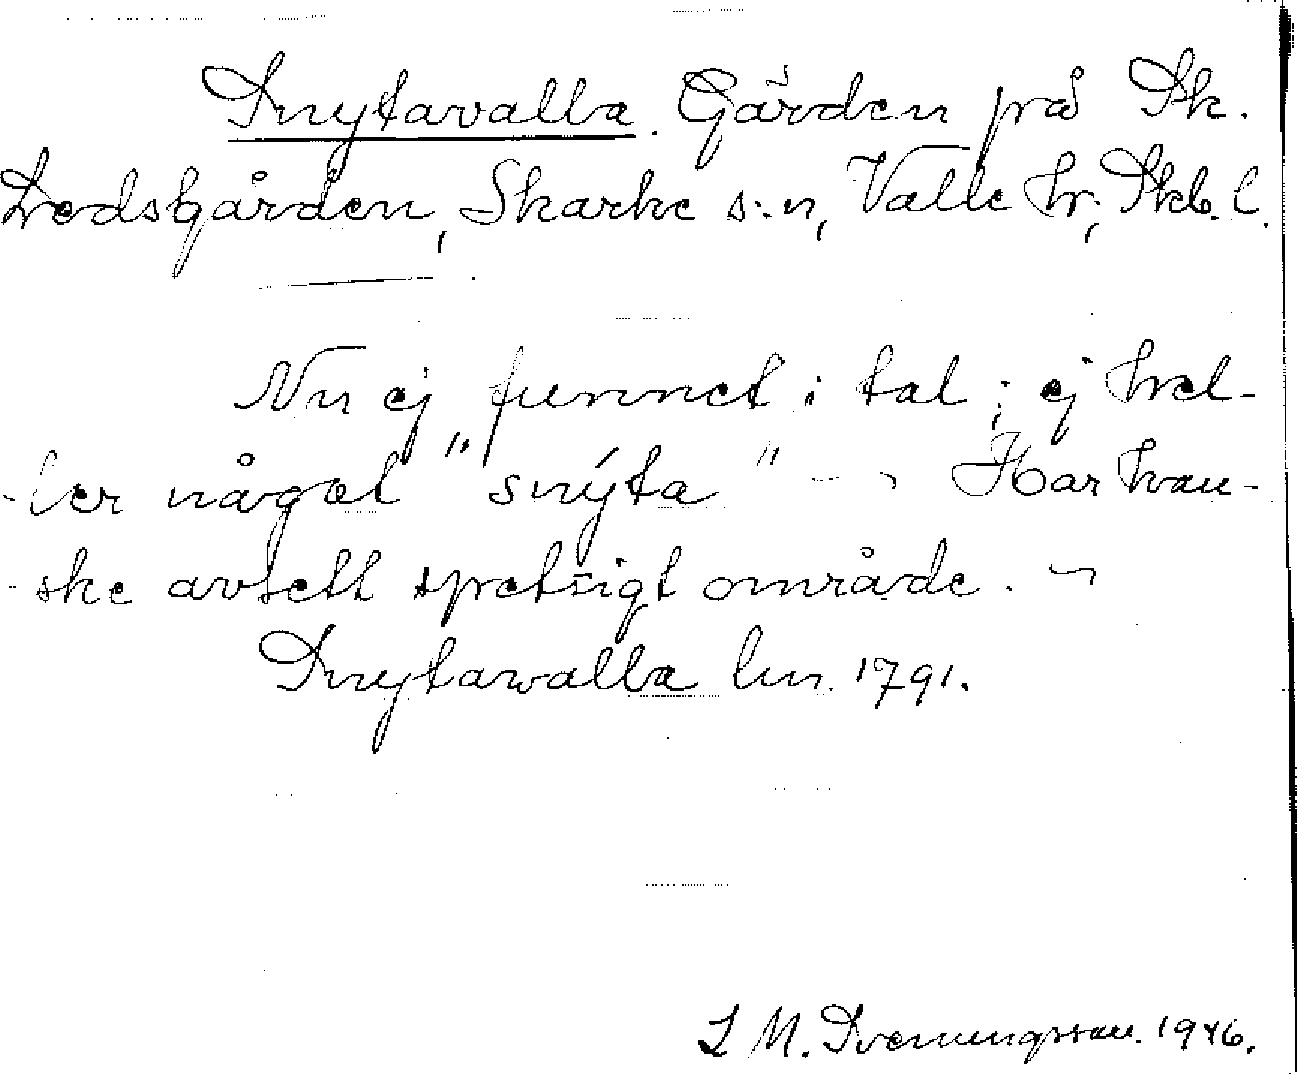 Snytavalla. Gärden på Sk.
Ledsgården, Skarke s:n, Valle hr, Skb. l.
Nu ej funnet i tal; ej hel-
ler något "snýta" - Har kan-
ske avsett spetsigt område.
Snytawalla lm. 1791.
L M. Svenungsson. 1946.